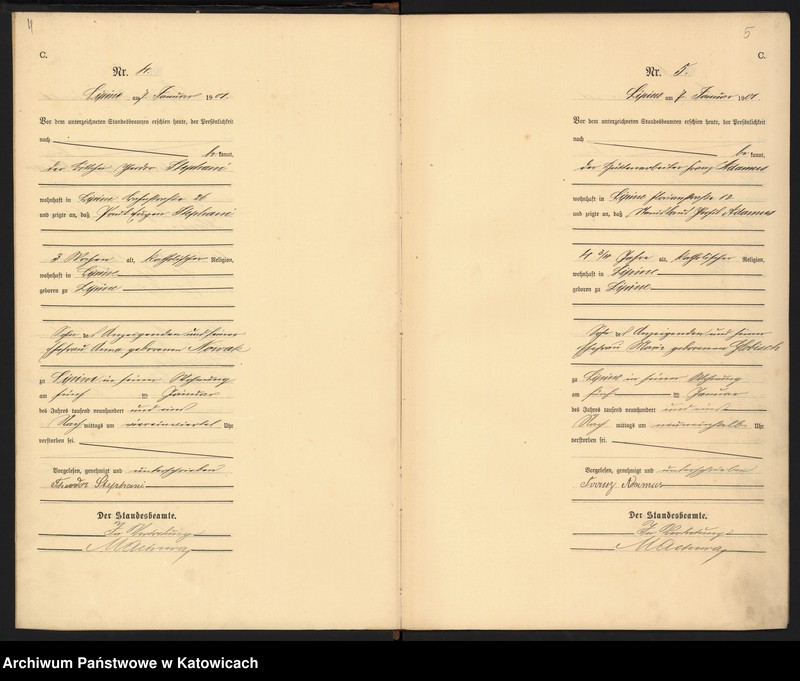 4
C.
Nr. 4.
Lipine am 7 Januar 1901.
Vor dem unterzeichneten Standesbeamten erschien heute, der Persönlichkeit
nach
be kannt,
der Theodor Stephani
wohnhaft in Lipine 26
und zeigte an, daß Paul Stephani
3 Wochen alt, katholischer Religion,
wohnhaft in Lipine
geboren zu Lipine
Sohn des Anzeigenden und seiner
Ehefrau Anna geborenen Nowak
zu Lipine in seiner Wohnung
am fünf ten Januar
des Jahres tausend neunhundert und eins
Nach mittags um Uhr
verstorben sei.
Vorgelesen, genehmigt und unterschrieben
Theodor Stephani
Der Standesbeamte.
In Vertretung
5
C.
Nr. 5.
Lipine am 7 Januar 1901.
Vor dem unterzeichneten Standesbeamten erschien heute, der Persönlichkeit
nach
be kannt,
der Hüttenarbeiter Franz Adamus
wohnhaft in Lipine Florianstraße 12
und zeigte an, daß Adamus
4 Jahre alt, katholischer Religion,
wohnhaft in Lipine
geboren zu Lipine
Sohn des Anzeigenden und seiner
Ehefrau Marie geborenen
zu Lipine in seiner Wohnung
am fünf ten Januar
des Jahres tausend neunhundert und eins
Nach mittags um Uhr
verstorben sei.
Vorgelesen, genehmigt und unterschrieben
Franz Adamus
Der Standesbeamte.
In Vertretung
Archiwum Państwowe w Katowicach